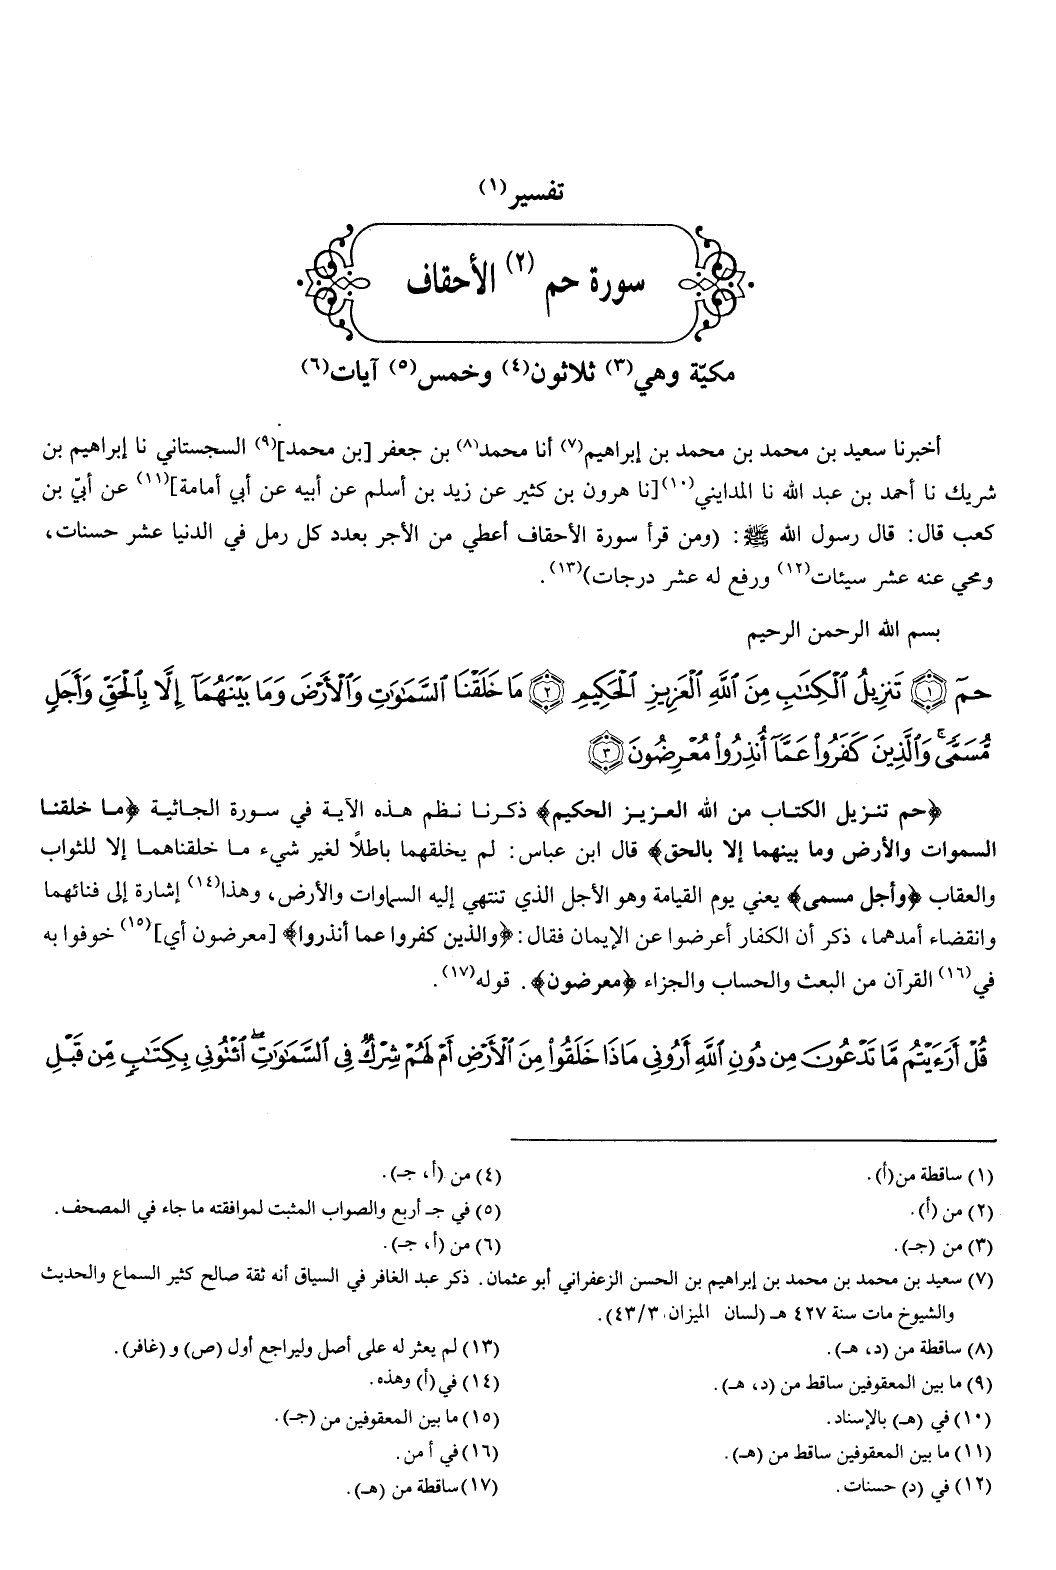 تفسير(١)
سورة حم (٢) الأحقاف
مكيّة وهي(٣) ثلاثون(٤) وخمس(٥) آيات(٦)
أخبرنا سعيد بن محمد بن محمد بن إبراهيم(٧) أنا محمد(٨) بن جعفر [بن محمد](٩) السجستاني نا إبراهيم بن
شريك نا أحمد بن عبد الله نا المدايني(١٠)[نا هرون بن كثير عن زيد بن أسلم عن أبيه عن أبي أمامة](١١) عن أبيّ بن
كعب قال: قال رسول الله ﷺ: (ومن قرأ سورة الأحقاف أعطي من الأجر بعدد كل رمل في الدنيا عشر حسنات،
ومحي عنه عشر سيئات(١٢) ورفع له عشر درجات)(١٣).
بسم الله الرحمن الرحيم
حمٓ ﴿١﴾ تَنزِيلُ ٱلْكِتَٰبِ مِنَ ٱللَّهِ ٱلْعَزِيزِ ٱلْحَكِيمِ ﴿٢﴾ مَا خَلَقْنَا ٱلسَّمَٰوَٰتِ وَٱلْأَرْضَ وَمَا بَيْنَهُمَآ إِلَّا بِٱلْحَقِّ وَأَجَلٍ
مُّسَمًّى ۚ وَٱلَّذِينَ كَفَرُوا۟ عَمَّآ أُنذِرُوا۟ مُعْرِضُونَ ﴿٣﴾
﴿حم تنزيل الكتاب من الله العزيز الحكيم﴾ ذكرنا نظم هذه الآية في سورة الجاثية ﴿ما خلقنا
السموات والأرض وما بينهما إلا بالحق﴾ قال ابن عباس: لم يخلقهما باطلاً لغير شيء ما خلقناهما إلا للثواب
والعقاب ﴿وأجل مسمى﴾ يعني يوم القيامة وهو الأجل الذي تنتهي إليه السماوات والأرض، وهذا(١٤) إشارة إلى فنائهما
وانقضاء أمدهما، ذكر أن الكفار أعرضوا عن الإيمان فقال: ﴿والذين كفروا عما أنذروا﴾ [معرضون أي](١٥) خوفوا به
في(١٦) القرآن من البعث والحساب والجزاء ﴿معرضون﴾. قوله(١٧).
قُلْ أَرَءَيْتُم مَّا تَدْعُونَ مِن دُونِ ٱللَّهِ أَرُونِي مَاذَا خَلَقُوا۟ مِنَ ٱلْأَرْضِ أَمْ لَهُمْ شِرْكٌ فِي ٱلسَّمَٰوَٰتِ ۖ ٱئْتُونِي بِكِتَٰبٍ مِّن قَبْلِ
(١) ساقطة من (أ).
(٢) من (أ).
(٣) من (جـ).
(٤) من (أ، جـ).
(٥) في جـ أربع والصواب المثبت لموافقته ما جاء في المصحف.
(٦) من (أ، جـ).
(٧) سعيد بن محمد بن محمد بن إبراهيم بن الحسن الزعفراني أبو عثمان. ذكر عبد الغافر في السياق أنه ثقة صالح كثير السماع والحديث
والشيوخ مات سنة ٤٢٧ هـ (لسان الميزان ٤٣/٣).
(٨) ساقطة من (د، هـ).
(٩) ما بين المعقوفين ساقط من (د، هـ).
(١٠) في (هـ) بالإسناد.
(١١) ما بين المعقوفين ساقط من (هـ).
(١٢) في (د) حسنات.
(١٣) لم يعثر له على أصل وليراجع أول (ص) و (غافر).
(١٤) في (أ) وهذه.
(١٥) ما بين المعقوفين من (جـ).
(١٦) في أ من.
(١٧) ساقطة من (هـ).